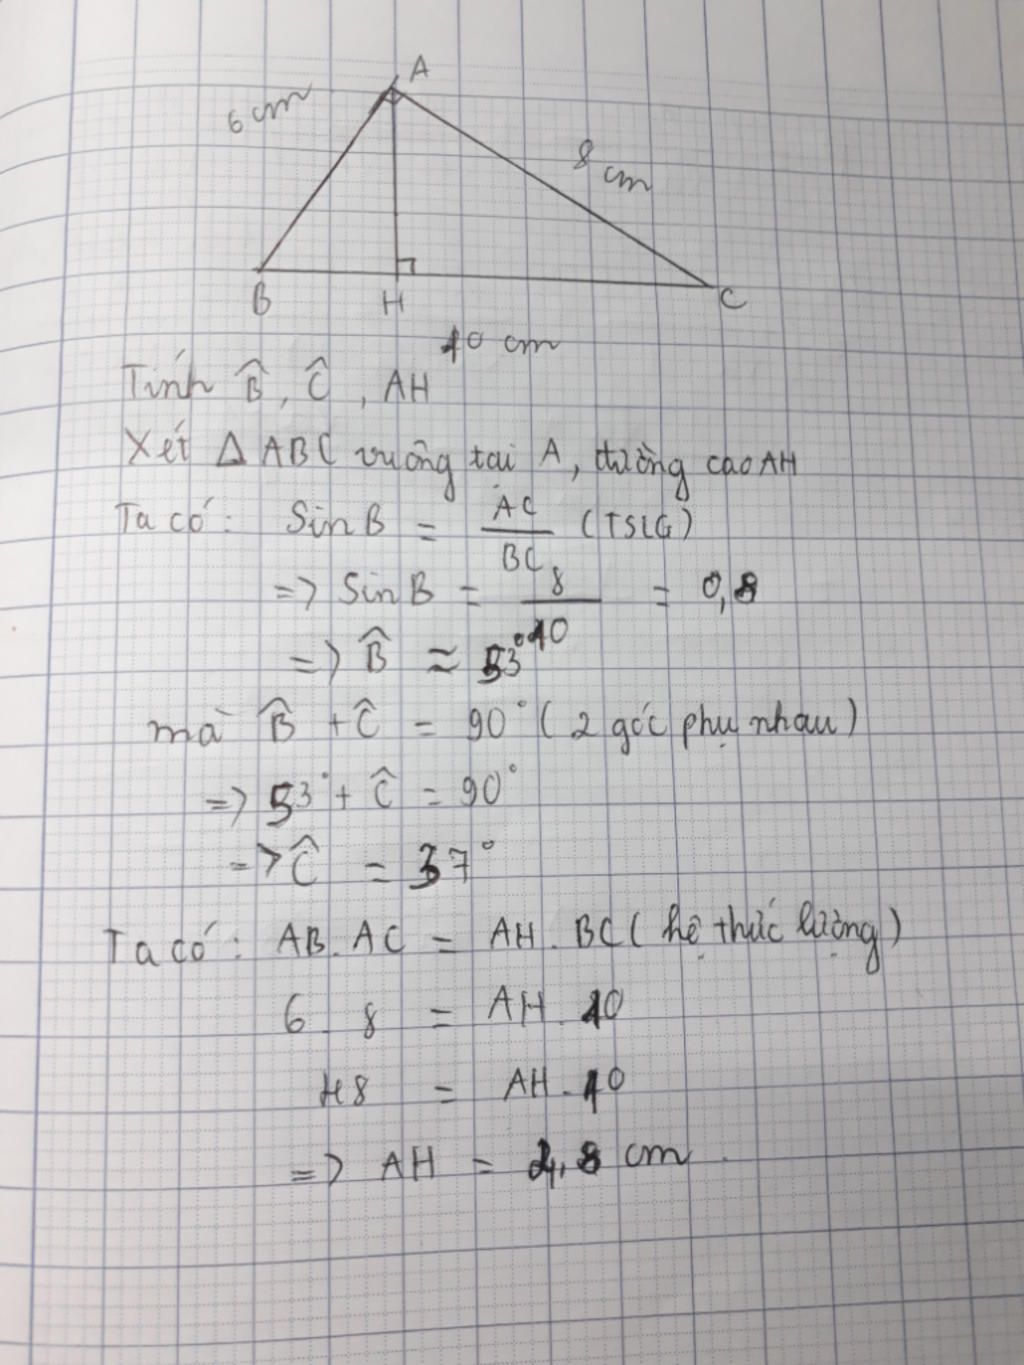 A
6 cm
8 cm
B H C
10 cm
Tính B̂, Ĉ, AH
Xét Δ ABC vuông tại A, đường cao AH
Ta có: Sin B = AC/BC (TSLG)
=> Sin B = 8/10 = 0,8
=> B̂ ≈ 53°
mà B̂ + Ĉ = 90° (2 góc phụ nhau)
=> 53° + Ĉ = 90°
=> Ĉ = 37°
Ta có: AB. AC = AH. BC (hệ thức lượng)
6. 8 = AH. 10
48 = AH. 10
=> AH = 4,8 cm.